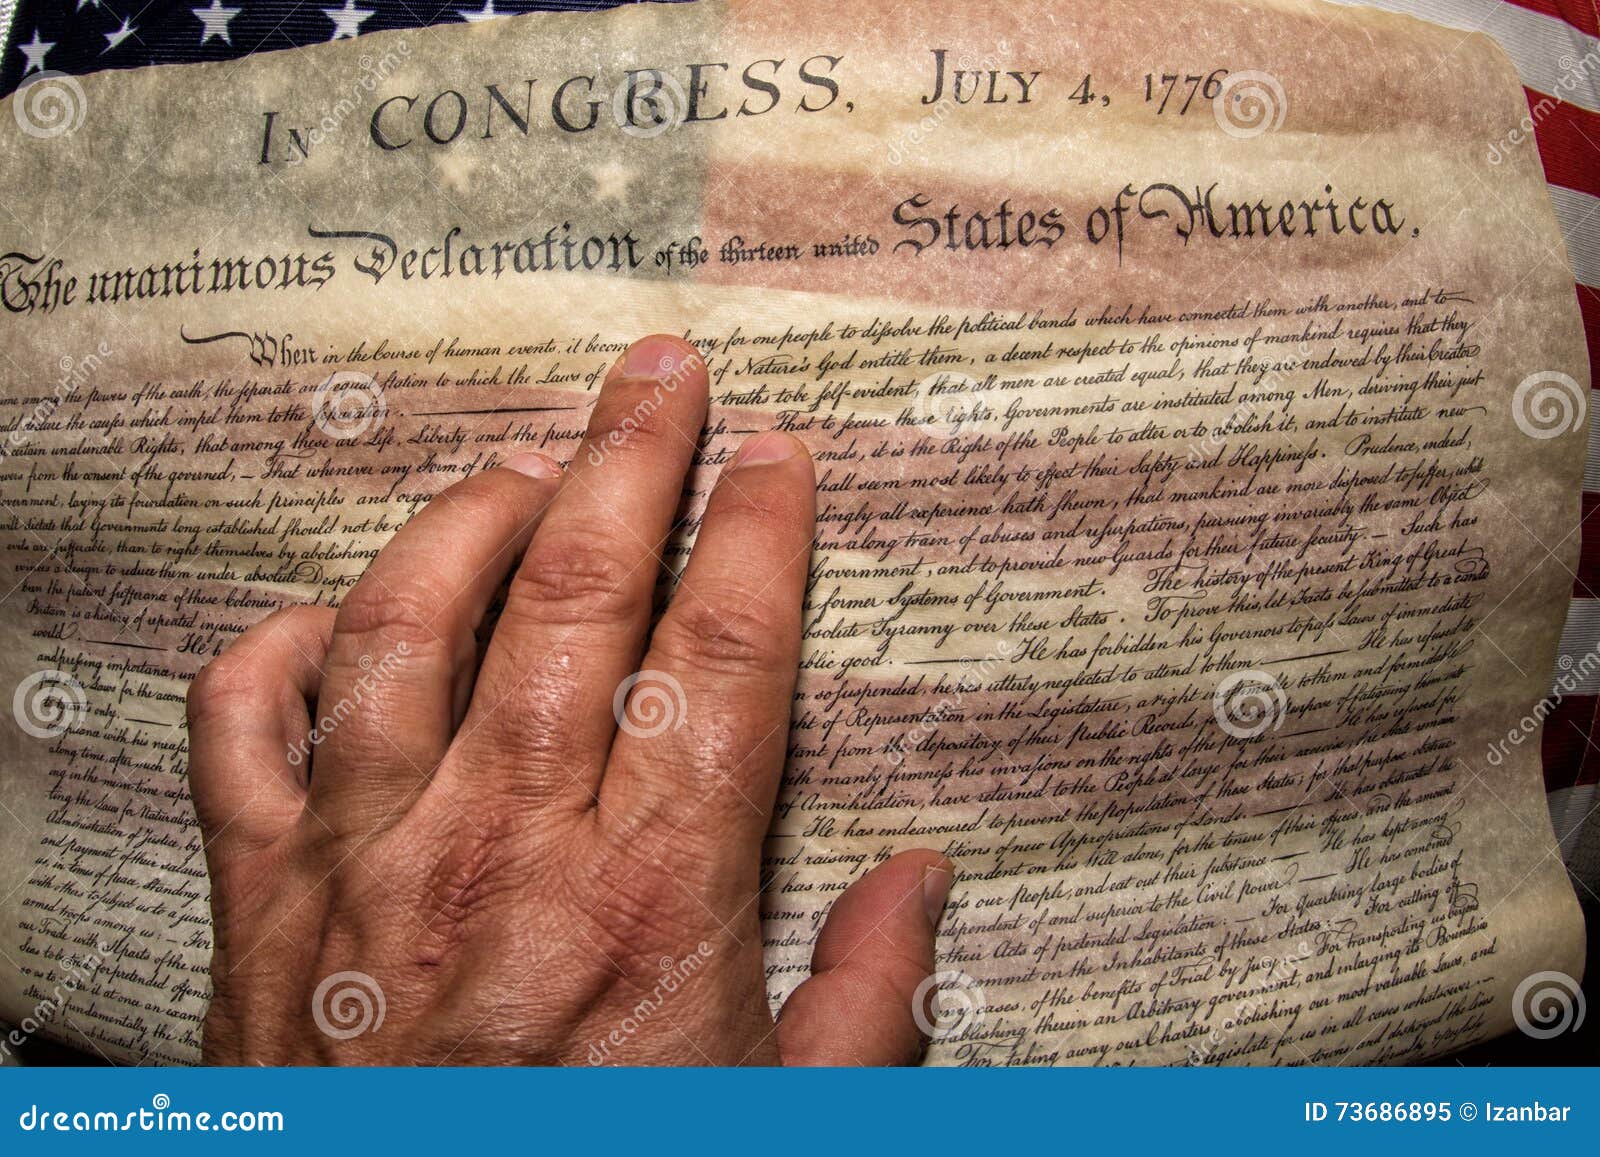 In CONGRESS, July 4, 1776.
The unanimous Declaration of the thirteen united States of America,
When in the Course of human events, it becom ary for one people to dissolve the political bands which have connected them with another, and to
among the powers of the earth, the separate and equal station to which the Laws of of Nature's God entitle them, a decent respect to the opinions of mankind requires that they
declare the causes which impel them to the separation. truths to be self-evident, that all men are created equal, that they are endowed by their Creator
certain unalienable Rights, that among these are Life, Liberty and the purs ss.— That to secure these rights, Governments are instituted among Men, deriving their just
from the consent of the governed,— That whenever any Form of ends, it is the Right of the People to alter or to abolish it, and to institute new
laying its foundation on such principles and orga hall seem most likely to effect their Safety and Happiness. Prudence, indeed,
will dictate that Governments long established should not be c dingly all experience hath shewn, that mankind are more disposed to suffer, while
evils are sufferable, than to right themselves by abolishing hen a long train of abuses and usurpations, pursuing invariably the same Object
a design to reduce them under absolute Despot Government, and to provide new Guards for their future security.— Such has
been the patient sufferance of these Colonies; and former Systems of Government. The history of the present King of Great
Britain is a history of repeated injuries bsolute Tyranny over these States. To prove this, let Facts be submitted to a candid
world. He h blic good. He has forbidden his Governors to pass Laws of immediate
and pressing importance, un so suspended, he has utterly neglected to attend to them. He has refused to
ht of Representation in the Legislature, a right inestimable to them and formidable
to tyrants only. tant from the depository of their Public Records, for the purpose of fatiguing them into
with his meas ith manly firmness his invasions on the rights of the people. He has refused for
along time, after such dis of Annihilation, have returned to the People at large for their exercise; the State remain
He has endeavoured to prevent the Population of these States; for that purpose obstruc
ting the Laws for Naturaliza and raising th ditions of new Appropriations of Lands. He has obstructed the
Administration of Justice, by pendent on his Will alone, for the tenure of their offices, and the amount
and payment of their salaries. ass our People, and eat out their substance. He has kept among
us, in times of peace, Standing ndependent of and superior to the Civil power. He has combined
with others to subject us to a juris their Acts of pretended Legislation:— For Quartering large bodies of
armed troops among us:— For commit on the Inhabitants of these States:— For cutting off
our Trade with all parts of the wo ny cases, of the benefits of Trial by Jury:— For transporting us beyond
Seas to be tried for pretended offenc establishing therein an Arbitrary government, and enlarging its Boundaries
so as to render it at once an exam For taking away our Charters, abolishing our most valuable Laws, and
altering fundamentally the Forms to legislate for us in all cases whatsoever.—
dreamstime.com
ID 73686895 © Izanbar